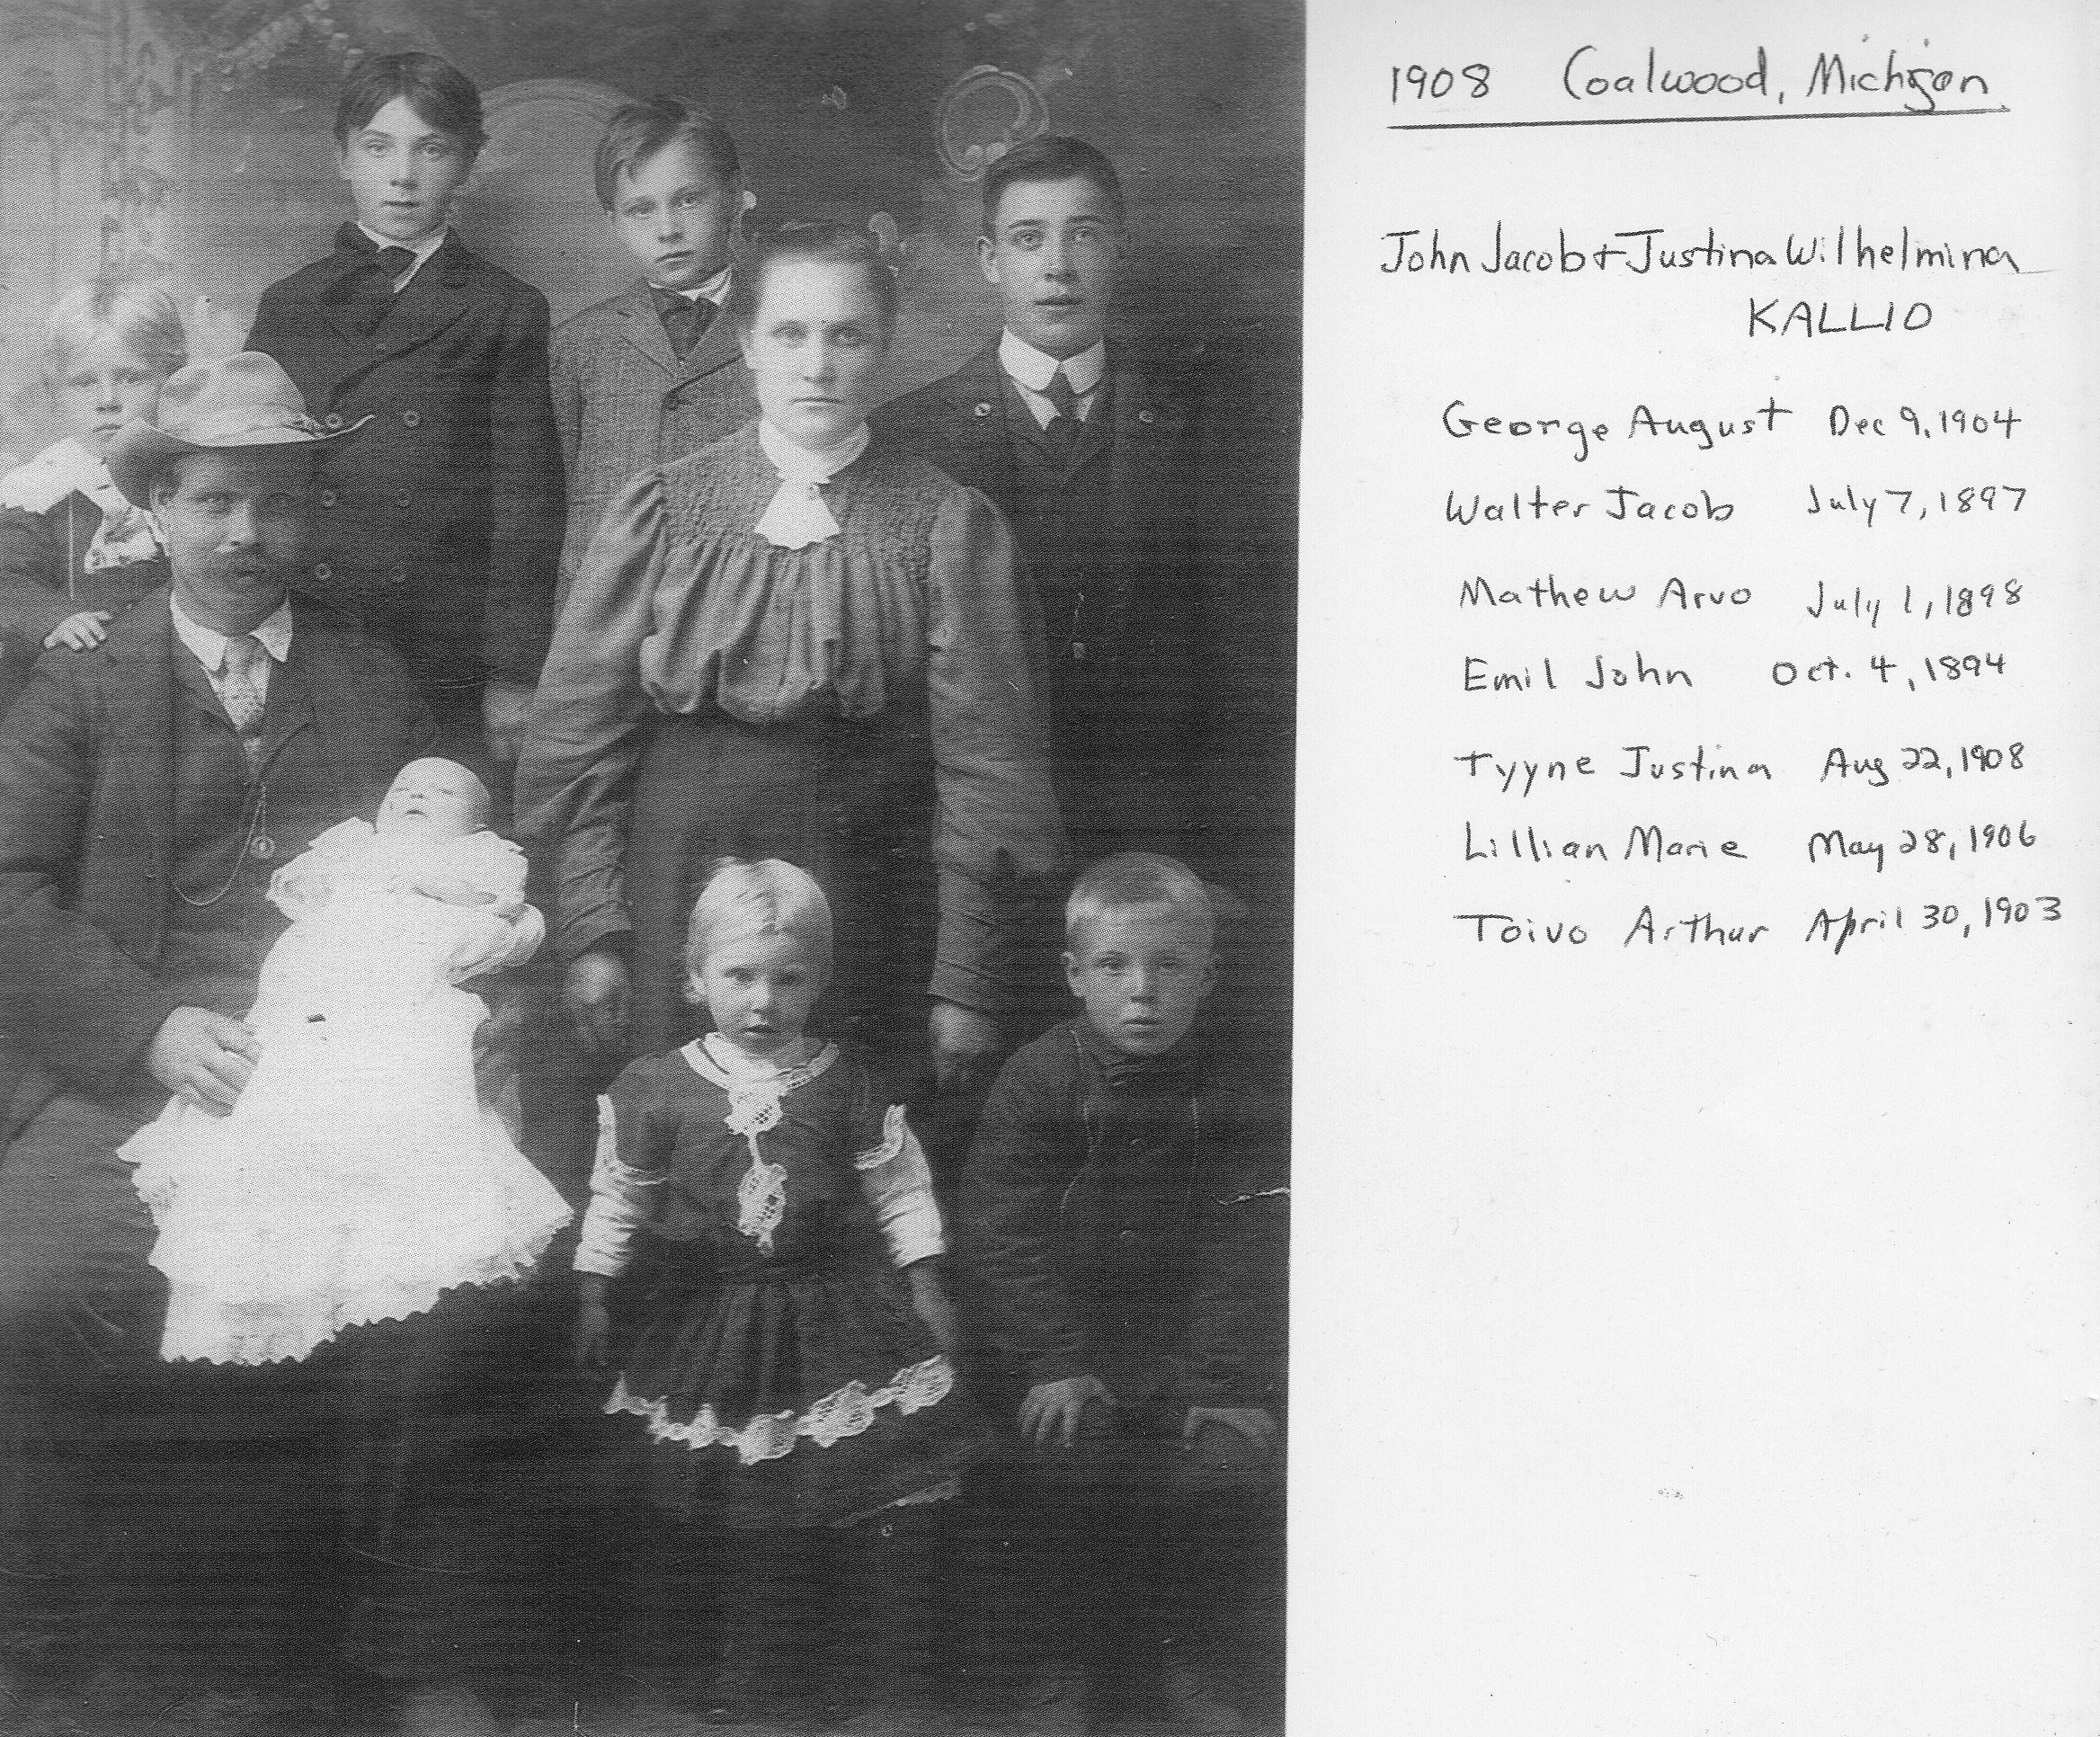 1908 Coalwood, Michigan
John Jacob + Justina Wilhelmina
KALLIO
George August Dec 9, 1904
Walter Jacob July 7, 1897
Mathew Arvo July 1, 1898
Emil John Oct. 4, 1894
Tyyne Justina Aug 22, 1908
Lillian Marie May 28, 1906
Toivo Arthur April 30, 1903